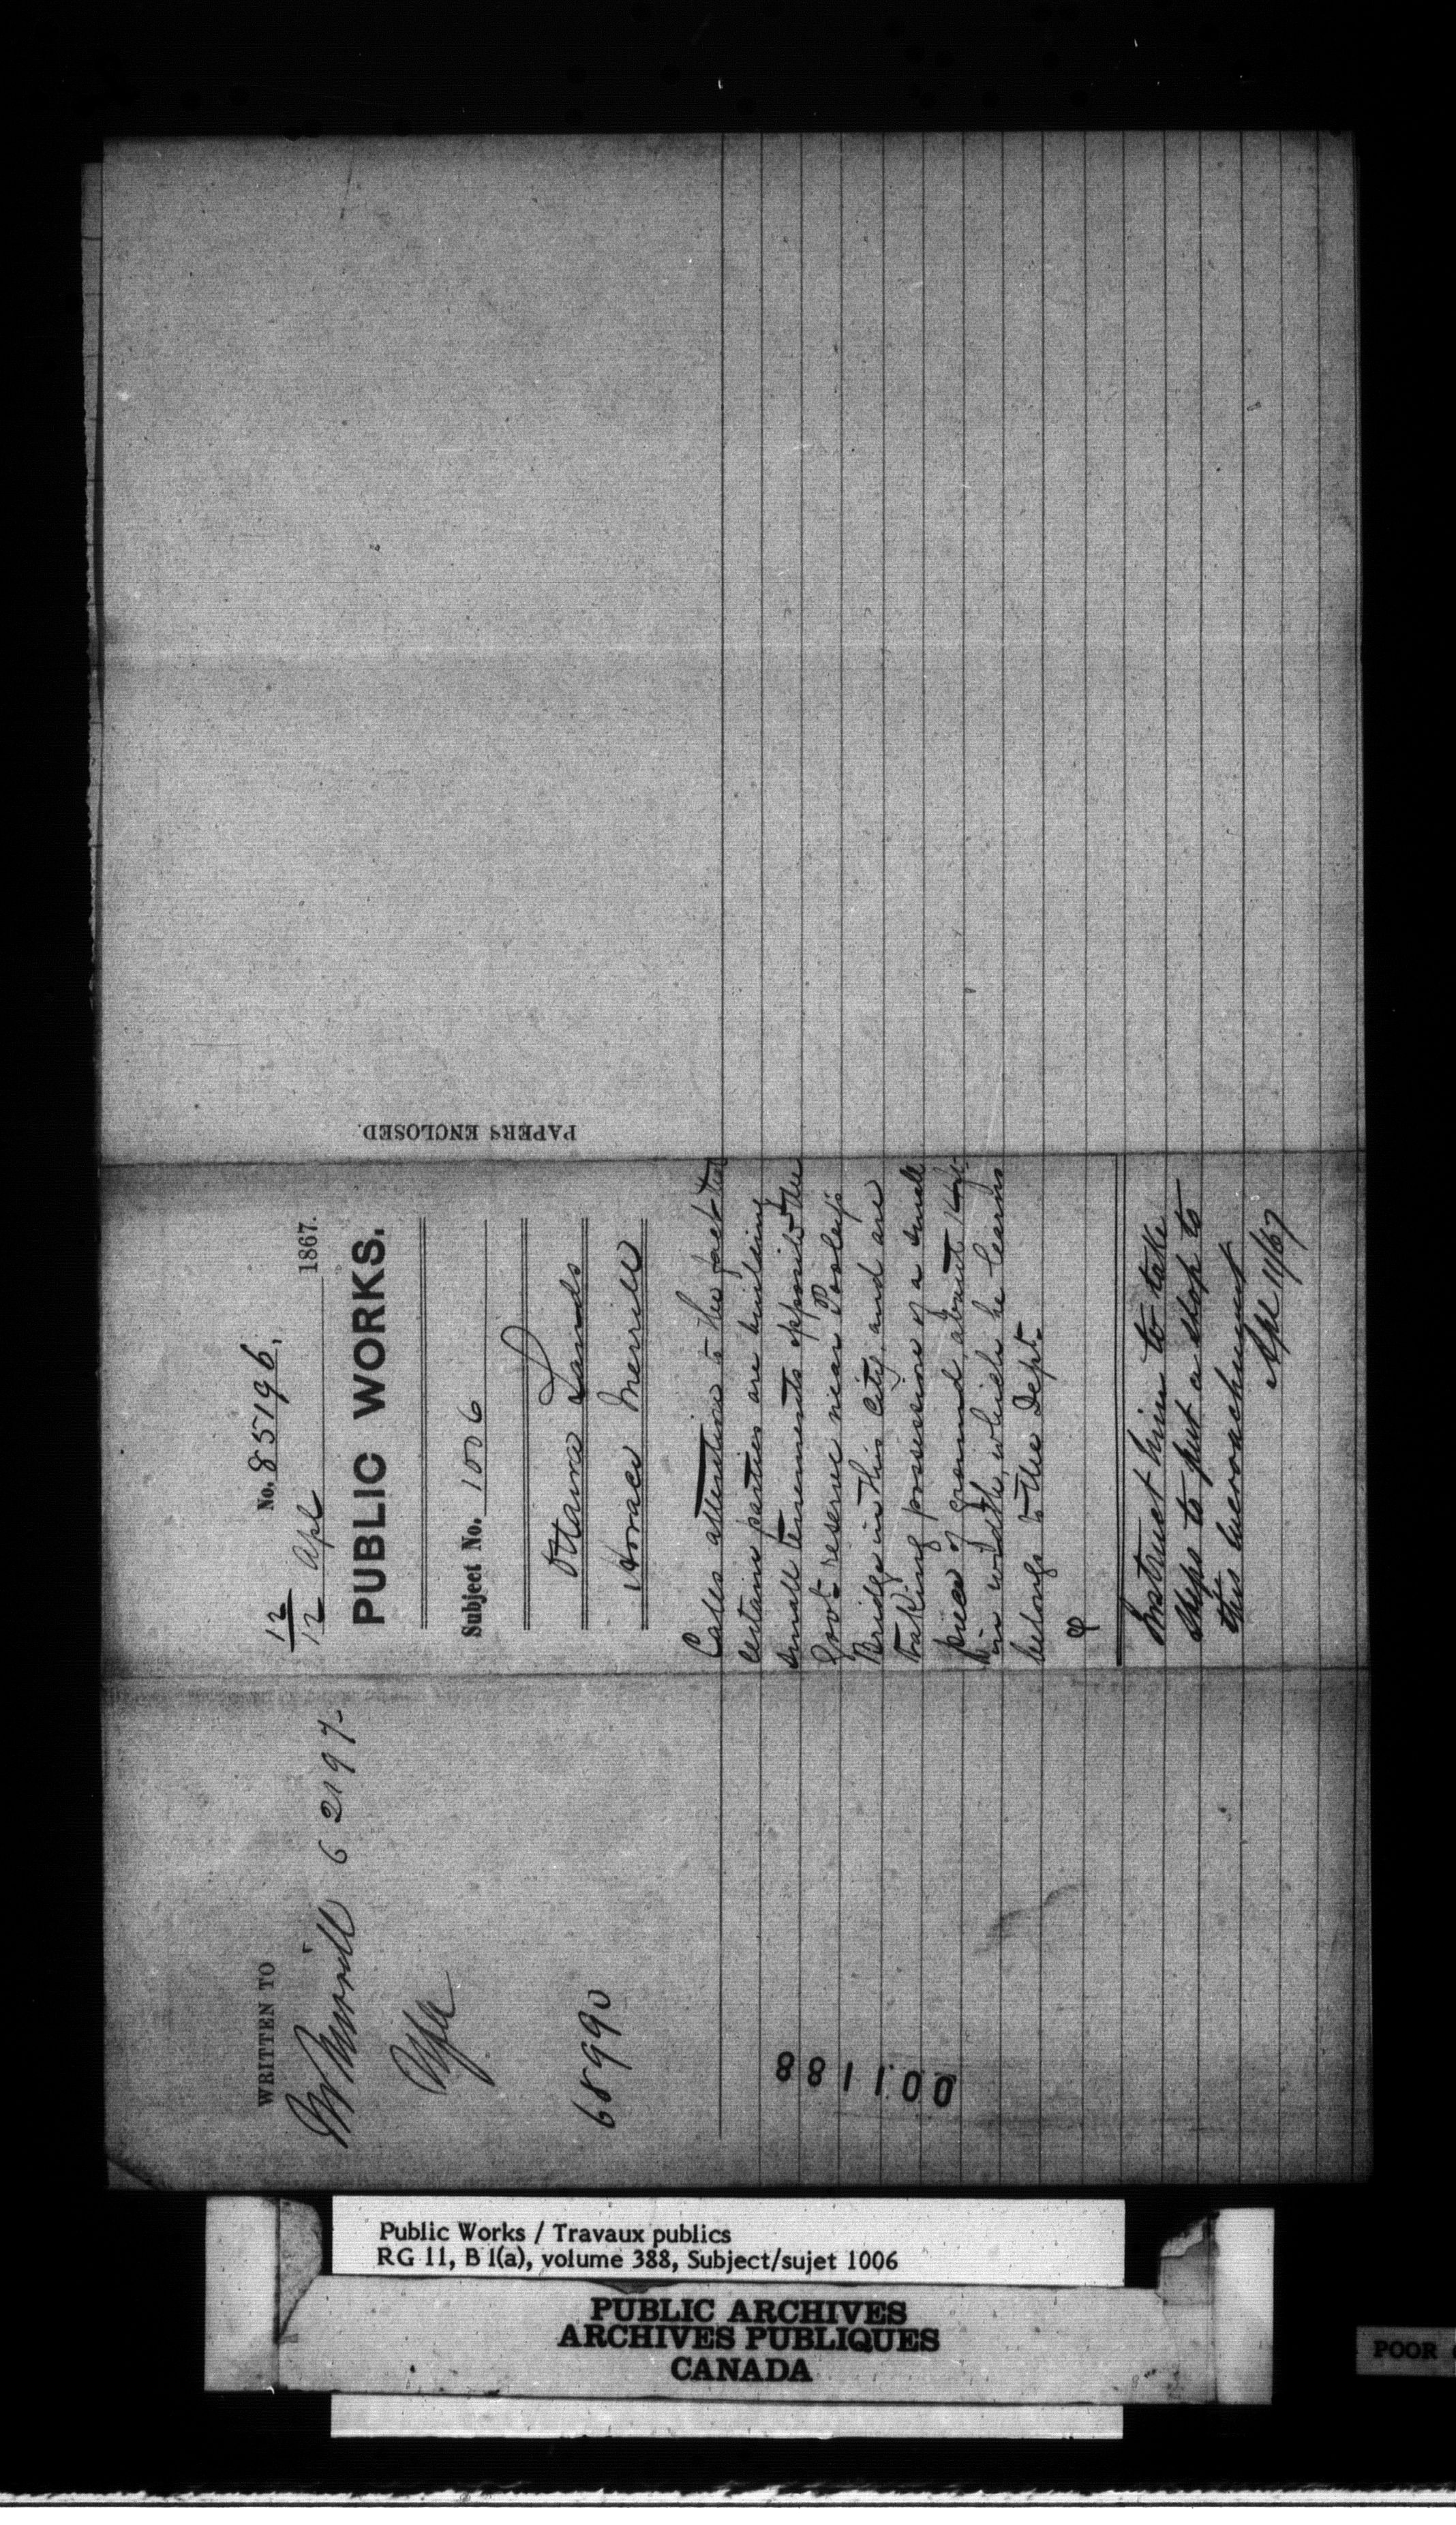 WRITTEN TO
Mr Merrill 62197
68990
001188
No. 85196.
12
12 Apl 1867.
PUBLIC WORKS.
Subject No. 1006
Ottawa Lands
Horace Merrill
Calls attention to the fact that
certain parties are building
small tenements opposite the
Govt reserve near Pooley's
Bridge in this City, and are
taking possession of a small
piece of ground, about
in width, which he learns
belongs to the Dept.
Instruct him to take
steps to put a stop to
this encroachment
Apl 11/67
PAPERS ENCLOSED.
Public Works / Travaux publics
RG 11, B 1(a), volume 388, Subject/sujet 1006
PUBLIC ARCHIVES
ARCHIVES PUBLIQUES
CANADA
POOR